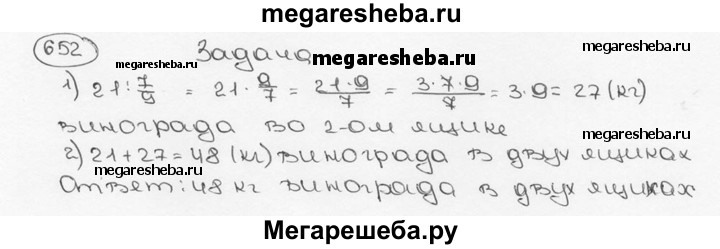 megaresheba.ru
652 Задача
megaresheba.ru megaresheba.ru
1) 21 : 7/9 = 21 · 9/7 = 21·9/7 = 3·7·9/7 = 3·9 = 27 (кг)
винограда во 2-ом ящике
2) 21+27=48 (кг) винограда в двух ящиках
Ответ: 48 кг винограда в двух ящиках
Мегарешеба.ру